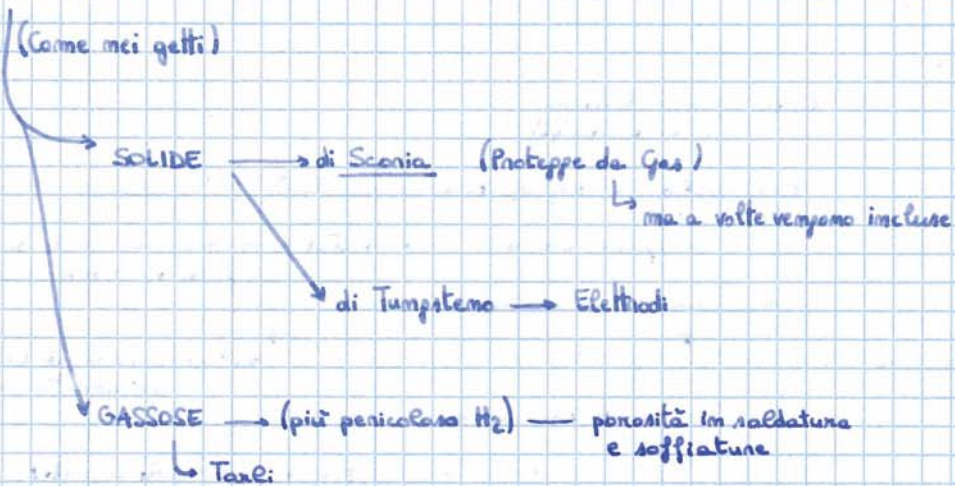 (Come nei getti)
SOLIDE → di Scoria (Protegge da Gas)
↳ ma a volte vengono incluse
di Tungsteno → Elettrodi
GASSOSE → (più pericoloso H₂) — porosità in saldatura
e soffiature
↳ Tarli